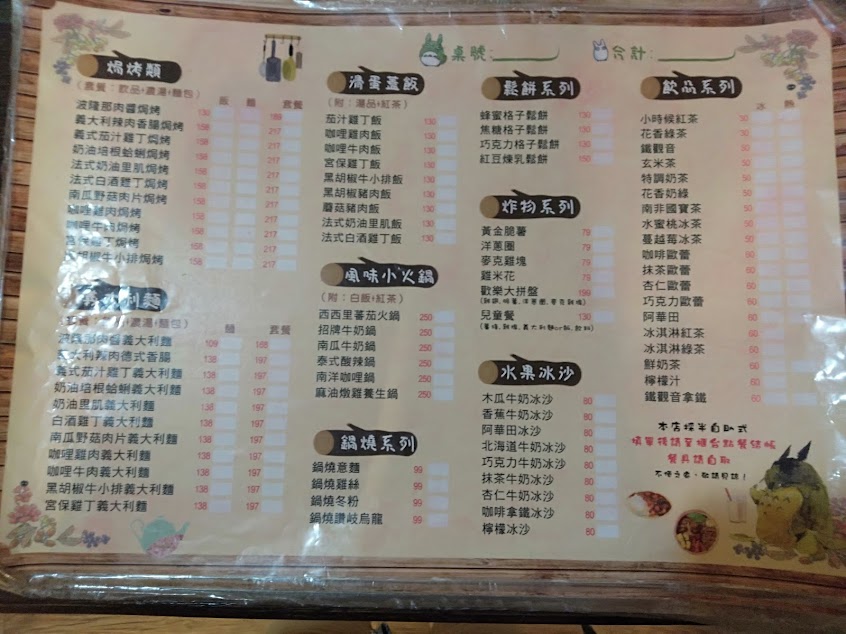 桌號:
合計:
焗烤類
(套餐:飲品+濃湯+麵包)
飯 麵 套餐
波隆那肉醬焗烤 130 169
義大利辣肉香腸焗烤 158 217
義式茄汁雞丁焗烤 158 217
奶油培根蛤蜊焗烤 158 217
法式奶油里肌焗烤 158 217
法式白酒雞丁焗烤 158 217
南瓜野菇肉片焗烤 158 217
咖哩雞肉焗烤 158 217
咖哩牛肉焗烤 158 217
宮保雞丁焗烤 158 217
黑胡椒牛小排焗烤 158 217
利麵
濃湯+麵包)
麵 套餐
義大利麵 109 168
義大利辣肉德式香腸 138 197
義式茄汁雞丁義大利麵 138 197
奶油培根蛤蜊義大利麵 138 197
奶油里肌義大利麵 138 197
白酒雞丁義大利麵 138 197
南瓜野菇肉片義大利麵 138 197
咖哩雞肉義大利麵 138 197
咖哩牛肉義大利麵 138 197
黑胡椒牛小排義大利麵 138 197
宮保雞丁義大利麵 138 197
滑蛋蓋飯
(附:湯品+紅茶)
茄汁雞丁飯 130
咖哩雞肉飯 130
咖哩牛肉飯 130
宮保雞丁飯 130
黑胡椒牛小排飯 130
黑胡椒豬肉飯 130
蘑菇豬肉飯 130
法式奶油里肌飯 130
法式白酒雞丁飯 130
風味小火鍋
(附:白飯+紅茶)
西西里蕃茄火鍋 250
招牌牛奶鍋 250
南瓜牛奶鍋 250
泰式酸辣鍋 250
南洋咖哩鍋 250
麻油燉雞養生鍋 250
鍋燒系列
鍋燒意麵 99
鍋燒雞絲 99
鍋燒冬粉 99
鍋燒讚岐烏龍 99
鬆餅系列
蜂蜜格子鬆餅 130
焦糖格子鬆餅 130
巧克力格子鬆餅 130
紅豆煉乳鬆餅 150
炸物系列
黃金脆薯 79
洋蔥圈 79
麥克雞塊 79
雞米花 79
歡樂大拼盤 199
兒童餐 130
水果冰沙
木瓜牛奶冰沙 80
香蕉牛奶冰沙 80
阿華田冰沙 80
北海道牛奶冰沙 80
巧克力牛奶冰沙 80
抹茶牛奶冰沙 80
杏仁牛奶冰沙 80
咖啡拿鐵冰沙 80
檸檬冰沙 80
飲品系列
冰 熱
小時候紅茶 50
花香綠茶 50
鐵觀音 50
玄米茶 50
特調奶茶 50
花香奶綠 50
南非國寶茶 50
水蜜桃冰茶 50
蔓越莓冰茶 50
咖啡歐蕾 60
抹茶歐蕾 60
杏仁歐蕾 60
巧克力歐蕾 60
阿華田 60
冰淇淋紅茶 60
冰淇淋綠茶 60
鮮奶茶 60
檸檬汁 60
鐵觀音拿鐵 60
本店採半自助式
填單後請至櫃台點餐結帳
餐具請自取
不便之處、敬請見諒!